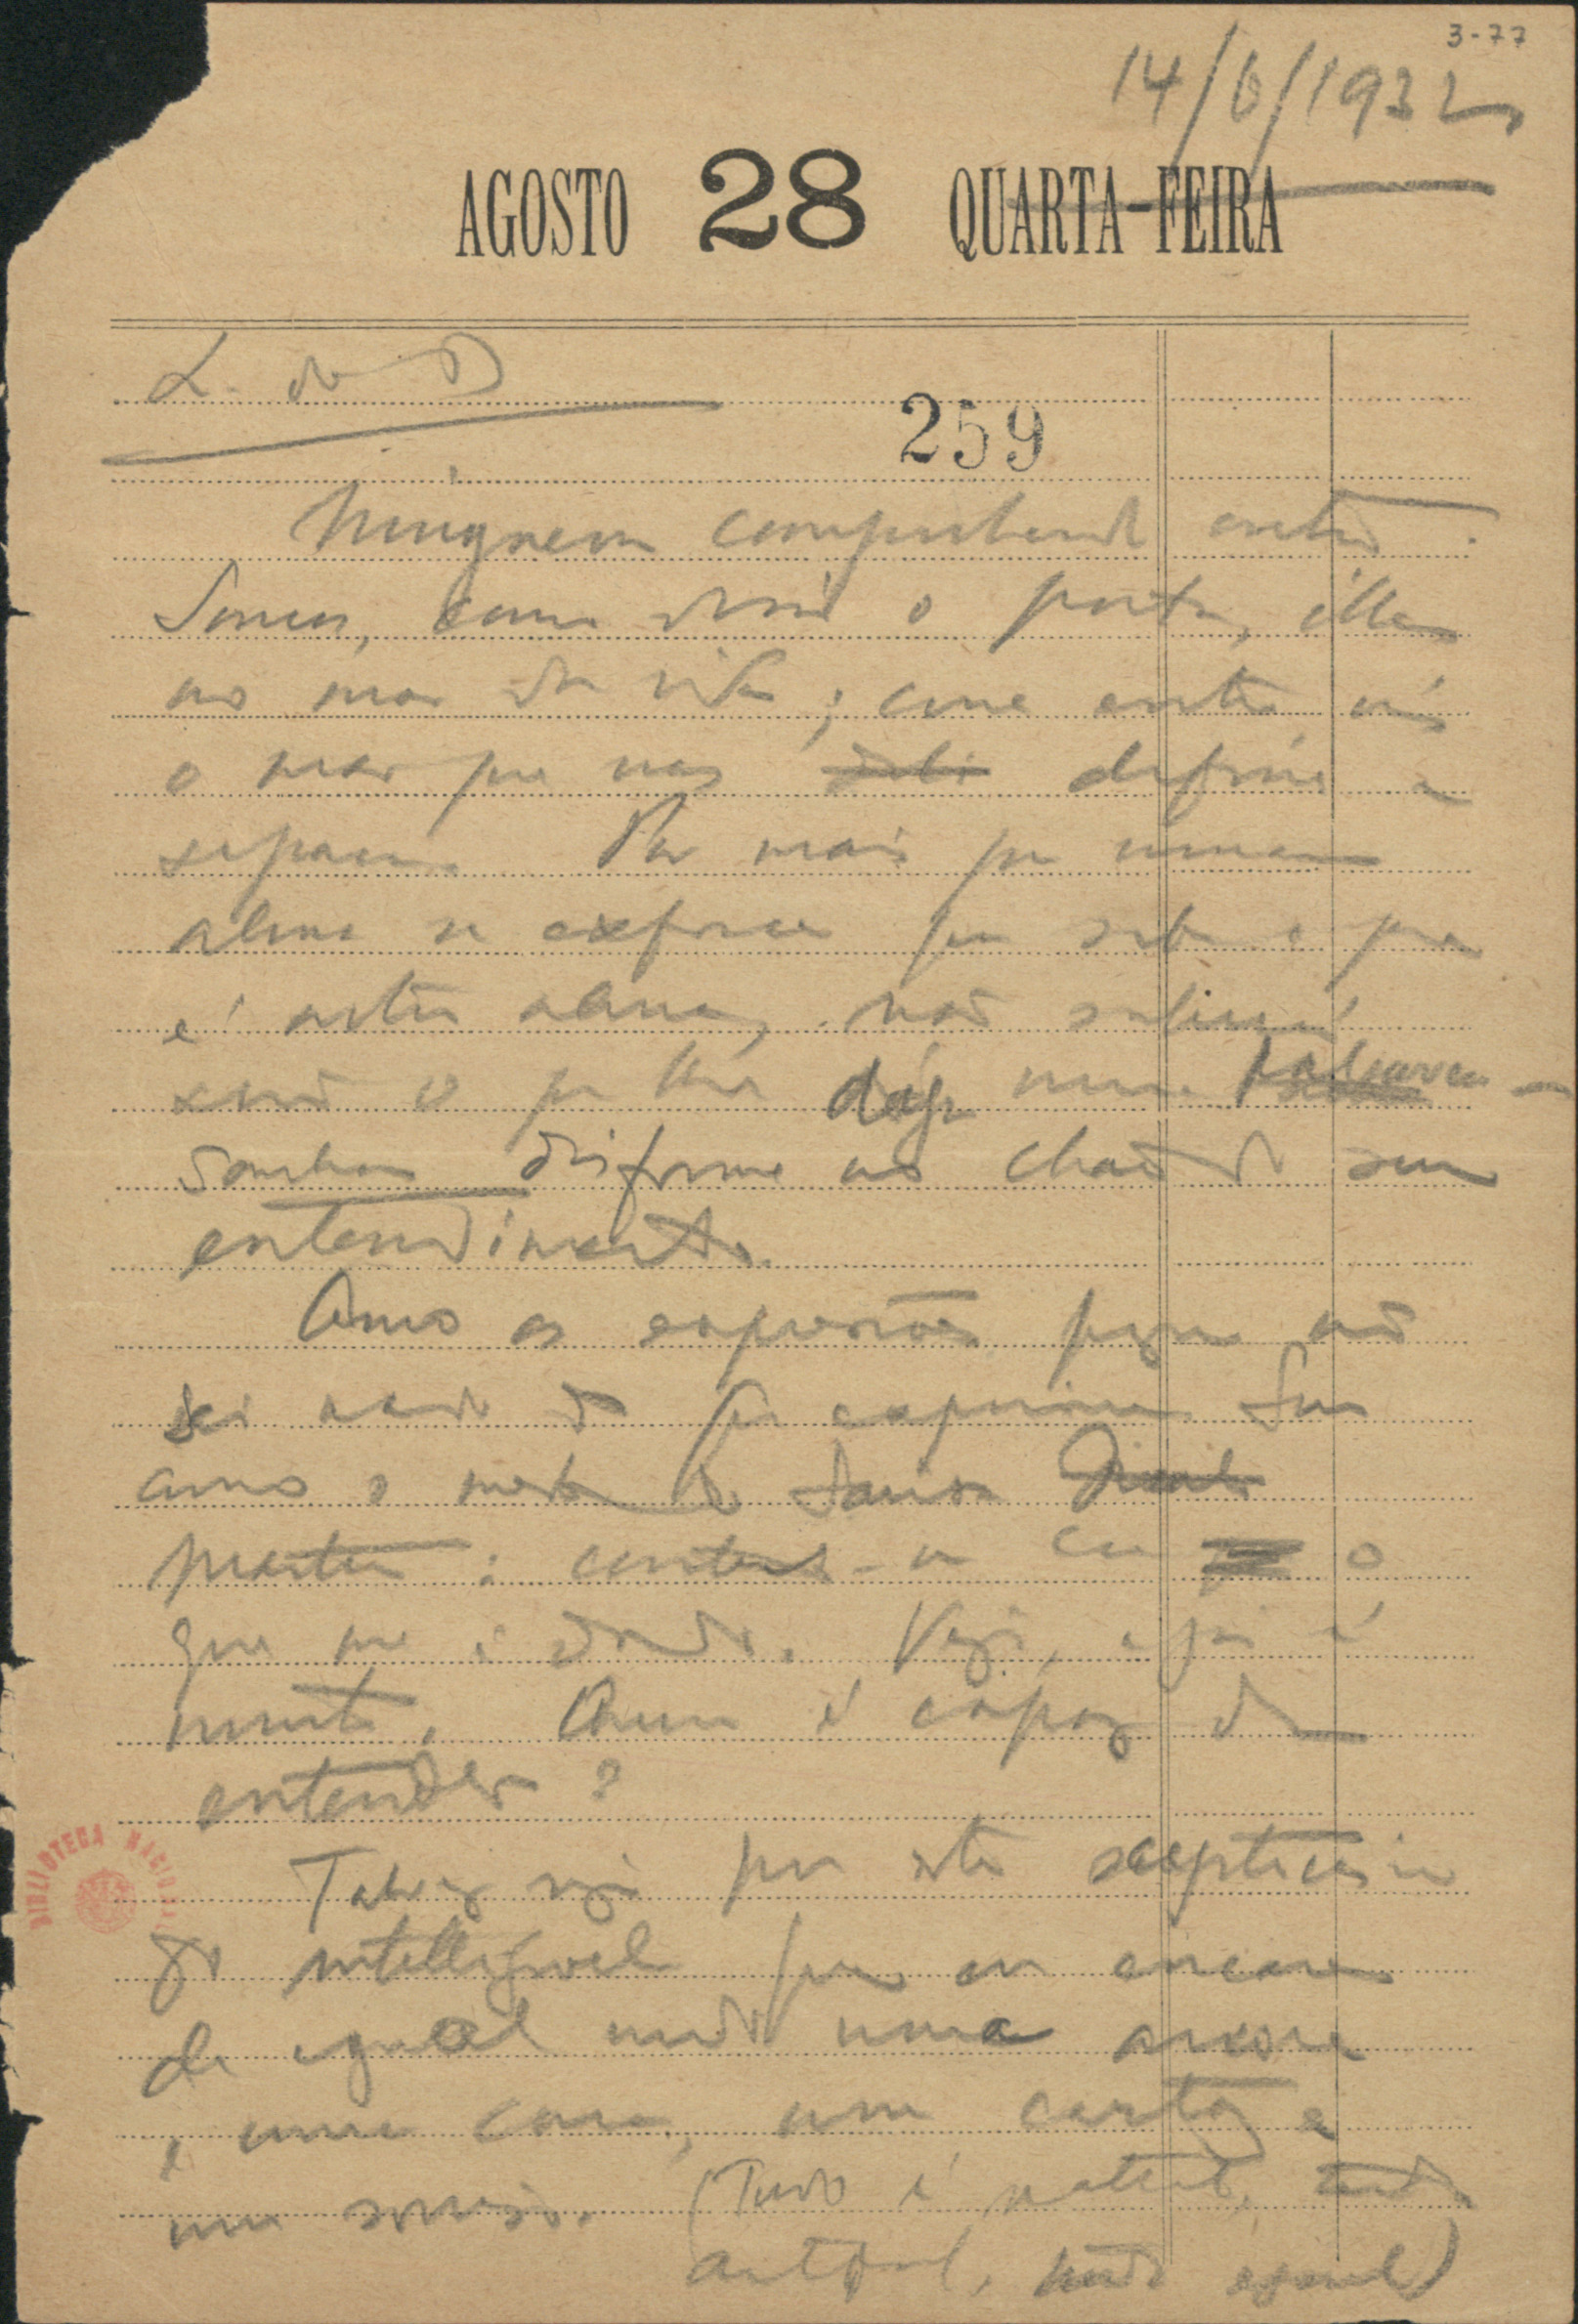 3-77
14/6/1932
AGOSTO 28 QUARTA-FEIRA
L. do D
259
Ninguem comprehende outro.
Somos, como disse o poeta, ilhas
no mar da vida; corre entre nós
o mar que nos define e
separa. Por mais que uma
alma se esforce por saber o que
é outra alma, não saberá
senão o que lhe diga uma palavra —
sombra disforme no chão do seu
entendimento.
Amo as expressões porque não
sei nada do que exprimem. Sou
como o mestre de Santa
Martha: contento-me com o
que me é dado. Vejo, e já é
muito. Quem é capaz de
entender?
Talvez seja por este scepticismo
do intelligivel que eu encaro
de egual modo uma arvore
e uma cara, um cartaz e
um sorriso. (Tudo é natural, tudo
artificial, tudo egual)